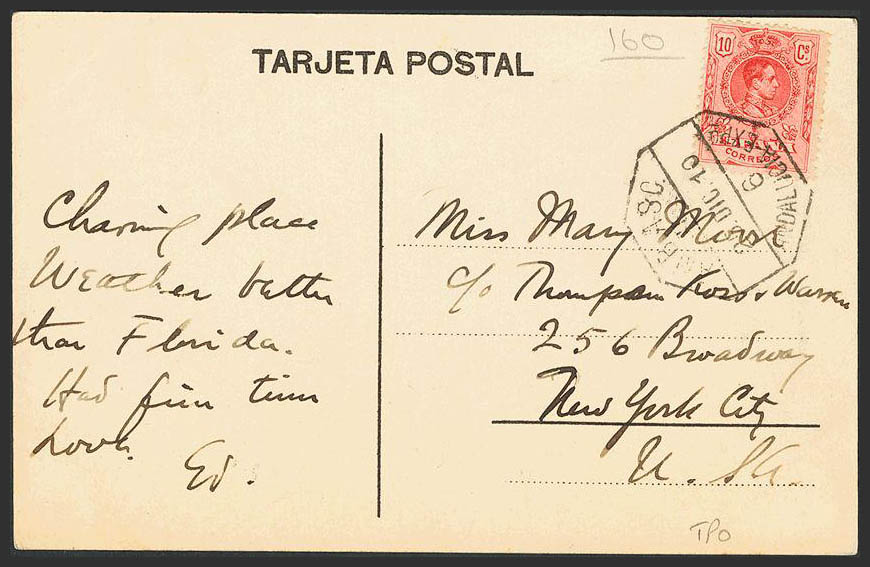 TARJETA POSTAL
160
10 Cs
CORREOS
ANDALUCIA-EXPR
6
DIC. 10
AMB. ASC
Charming place
Weather better
than Florida.
Had fine time
Love.
Ed.
Miss Mary Morse
c/o Thompson Koss & Warren
256 Broadway
New York City
U. SA.
TPO